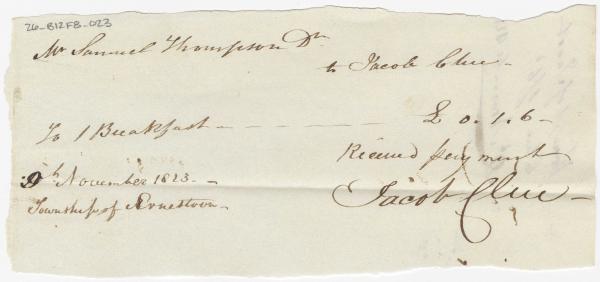 26-B12F8-023
Mr Samuel Thompson Dr
to Jacob Clue -
To 1 Breakfast - £ 0.1.6 -
Received payment
9th November 1823 -
Jacob Clue -
Township of Ernestown -